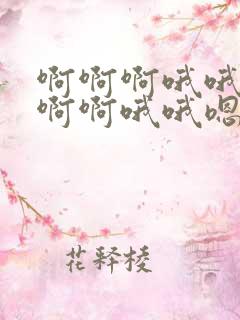 啊啊啊哦哦
啊啊哦哦嗯
花释棱